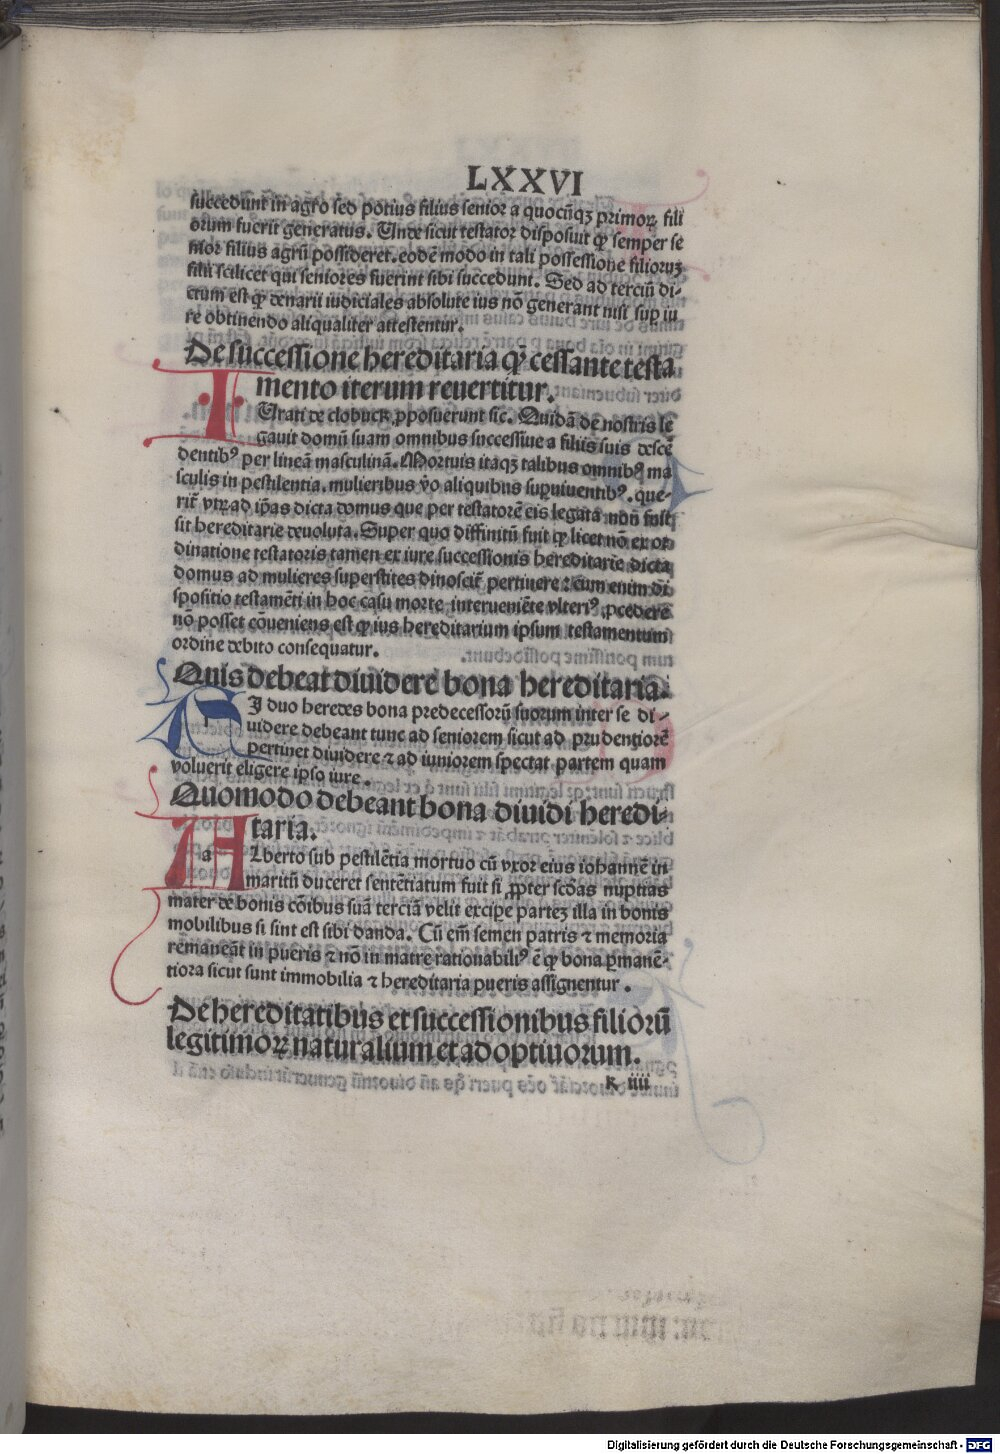 LXXVI
succedunt in agro sed potius filius senior a quocūqꝫ primoꝝ fili
orum fuerit generatus. Unde sicut testator disposuit ꝙ semper se
nior filius agrū possideret. eodē modo in tali possessione filioruꝫ
filii scilicet qui seniores fuerint sibi succedunt. Sed ad terciū di-
ctum est ꝙ denarii iudiciales absolute ius nō generant nisi sup iu
re obtinendo aliqualiter attestentur.
De successione hereditaria ꝙ cessante testa
mento iterum reuertitur.
I Urati de clobuck ꝓposuerunt sic. Quidā de nostris le
gauit domū suam omnibus successiue a filiis suis descē
dentibꝰ per lineā masculinā. Mortuis itaqꝫ talibus omnibꝰ ma
sculis in pestilentia. mulieribus v̄o aliquibus suꝑuiuentibꝰ. que-
rit̄ vtꝝ ad ip̄as dicta domus que per testatorē eis legata non fuit
sit hereditarie deuoluta. Super quo diffinitū fuit ꝙ licet nō ex or
dinatione testatoris tamen ex iure successionis hereditarie dicta
domus ad mulieres superstites dinoscit̄ pertinere : cum enim di
spositio testamēti in hoc casu morte interueniēte vlteriꝰ ꝓcedere
nō posset cōueniens est ꝙ ius hereditarium ipsum testamentum
ordine debito consequatur.
Quis debeat diuidere bona hereditaria.
S I duo heredes bona predecessorū suorum inter se di-
uidere debeant tunc ad seniorem sicut ad prudentiorē
pertinet diuidere ⁊ ad iuniorem spectat partem quam
voluerit eligere ipso iure.
Quomodo debeant bona diuidi heredi-
taria.
A a Lberto sub pestilētia mortuo cū vxor eius iohannē in
maritū duceret sentētiatum fuit si ꝓpter scd̄as nuptias
mater de bonis cōibus suā terciā velit excipe parteꝫ illa in bonis
mobilibus si sint est sibi danda. Cū em̄ semen patris ⁊ memoria
remaneāt in pueris ⁊ nō in matre rationabiliꝰ ē ꝙ bona ꝑmanē-
tiora sicut sunt immobilia ⁊ hereditaria pueris assignentur.
De hereditatibus et successionibus filiorū
legitimoꝝ naturalium et adoptiuorum.
k iiii
Digitalisierung gefördert durch die Deutsche Forschungsgemeinschaft - DFG